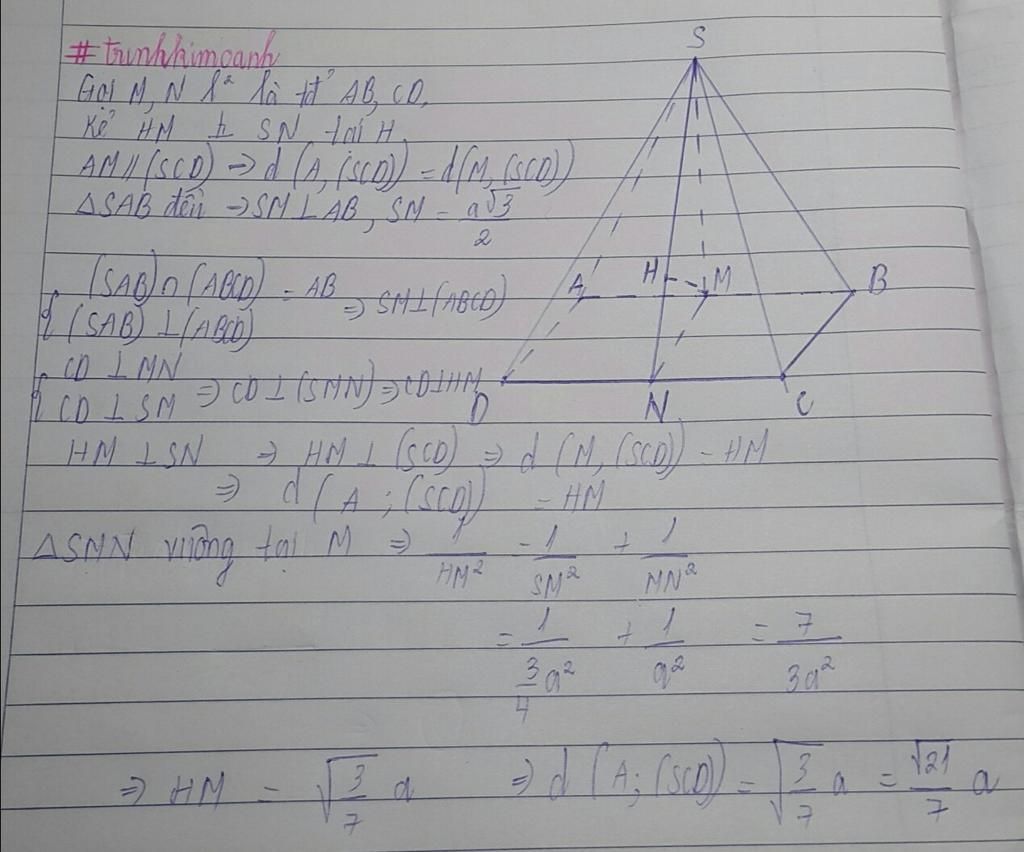 #trinhkimoanh
Gọi M, N l² là tđ' AB, CD.
Kẻ HM ⊥ SN tại H.
AM // (SCD) => d (A, (SCD)) = d(M, (SCD))
△SAB đều => SM⊥AB, SM = a√3/2
{ (SAB)∩(ABCD) = AB
{ (SAB) ⊥(ABCD) => SM⊥(ABCD)
{ CD ⊥ MN
{ CD ⊥ SM => CD⊥(SMN)=>CD⊥HM
HM ⊥SN => HM⊥ (SCD) => d (M, (SCD)) = HM
=> d (A ; (SCD)) = HM
△SMN vuông tại M => 1/HM² = 1/SM² + 1/MN²
= 1/(3/4 a²) + 1/a² = 7/3a²
=> HM = √(3/7) a => d (A; (SCD)) = √(3/7) a = √21/7 a
S
A
H
M
B
D
N
C